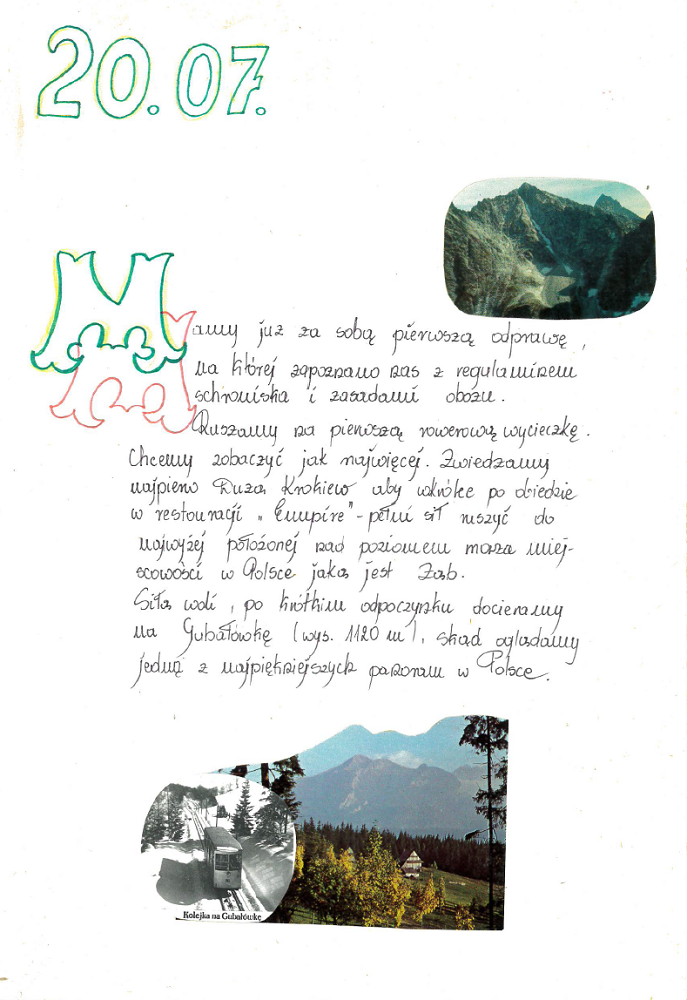 20.07.
Mamy już za sobą pierwszą odprawę,
na której zapoznano nas z regulaminem
schroniska i zasadami obozu.
Ruszamy na pierwszą rowerową wycieczkę.
Chcemy zobaczyć jak najwięcej. Zwiedzamy
najpierw Dużą Krokiew aby wkrótce po obiedzie
w restauracji „Empire" - pełni sił ruszyć do
najwyżej położonej nad poziomem morza miej-
scowości w Polsce jaką jest Ząb.
Siłą woli, po krótkim odpoczynku docieramy
na Gubałówkę (wys. 1120 m), skąd oglądamy
jedną z najpiękniejszych panoram w Polsce.
Kolejka na Gubałówkę